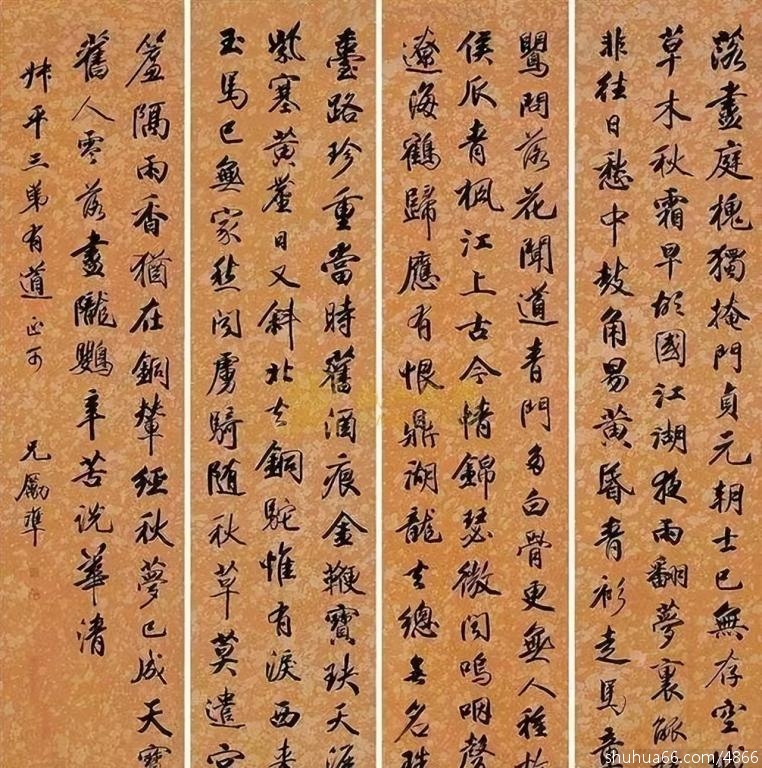 落盡庭槐獨掩門貞元朝士已無存空
草木秋霜早故國江湖夜雨翻夢裏觚
非往日愁中鼓角易黃昏青衫走馬章
落花聞道青門多白骨更無人種故
侯瓜青楓江上古今情錦瑟微聞嗚咽聲
遼海鶴歸應有恨鼎湖龍去總無名珠
臺路珍重當時舊酒痕金鞭寶玦天涯
紫塞黃蘆日又斜北去銅駝惟有淚西來
玉馬已無家愁聞虜騎隨秋草莫遣宮
簾隔雨香猶在銅輦經秋夢已成天寶
舊人零落盡隴鸚辛苦說華清
平三弟有道正
兄勵準
shuhua66.com/4866